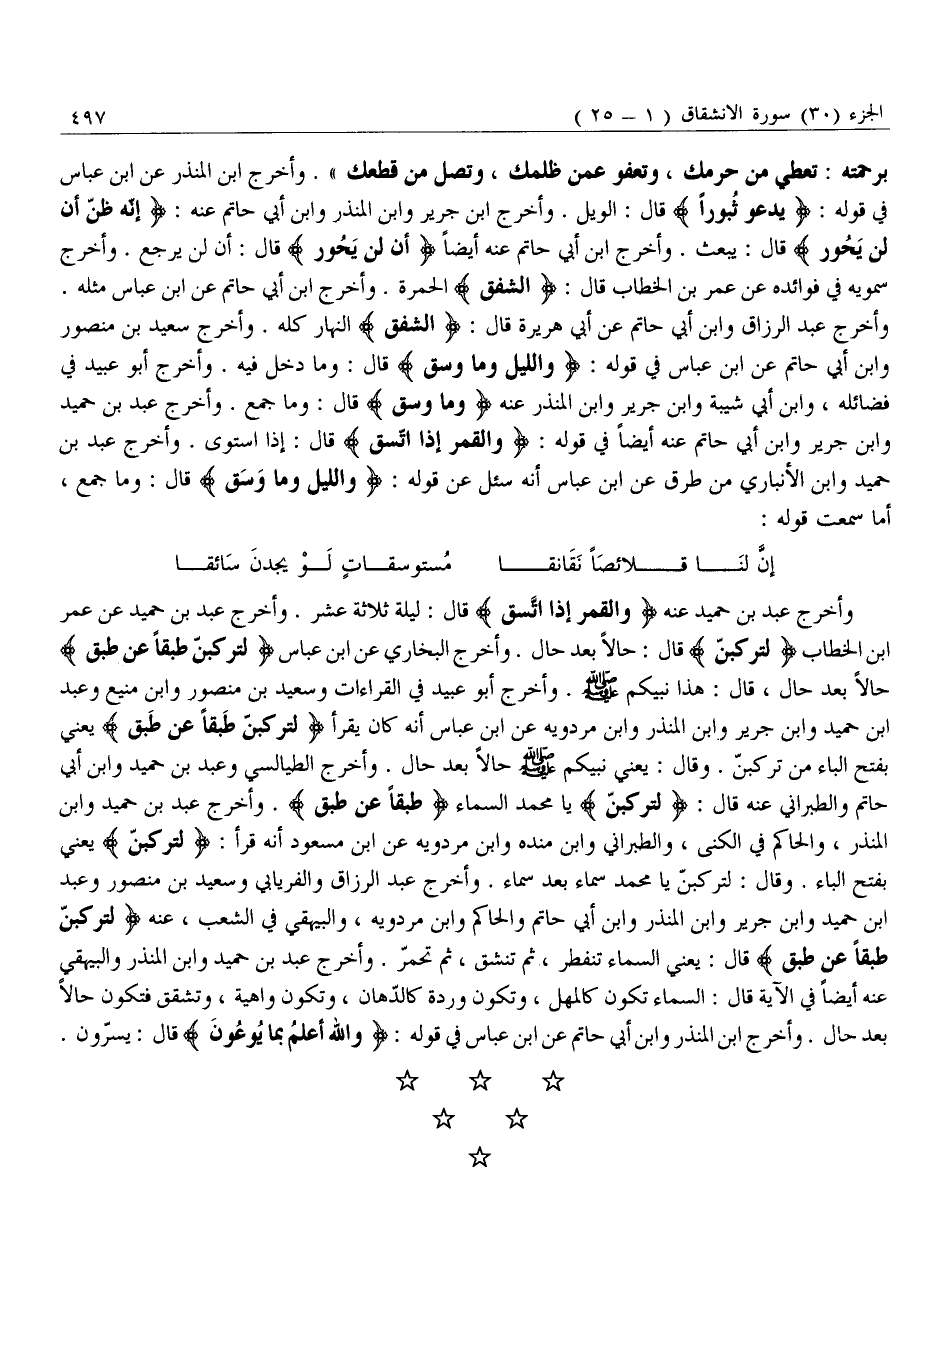 الجزء (٣٠) سورة الانشقاق ( ١ – ٢٥ ) ٤٩٧
برحمته : تعطي من حرمك ، وتعفو عمن ظلمك ، وتصل من قطعك » . وأخرج ابن المنذر عن ابن عباس
في قوله : ﴿ يدعو ثُبوراً ﴾ قال : الويل . وأخرج ابن جرير وابن المنذر وابن أبي حاتم عنه : ﴿ إنّه ظنّ أن
لن يَحُور ﴾ قال : يبعث . وأخرج ابن أبي حاتم عنه أيضاً ﴿ أن لن يَحُور ﴾ قال : أن لن يرجع . وأخرج
سمويه في فوائده عن عمر بن الخطاب قال : ﴿ الشفق ﴾ الحمرة . وأخرج ابن أبي حاتم عن ابن عباس مثله .
وأخرج عبد الرزاق وابن أبي حاتم عن أبي هريرة قال : ﴿ الشفق ﴾ النهار كله . وأخرج سعيد بن منصور
وابن أبي حاتم عن ابن عباس في قوله : ﴿ والليل وما وسق ﴾ قال : وما دخل فيه . وأخرج أبو عبيد في
فضائله ، وابن أبي شيبة وابن جرير وابن المنذر عنه ﴿ وما وسق ﴾ قال : وما جمع . وأخرج عبد بن حميد
وابن جرير وابن أبي حاتم عنه أيضاً في قوله : ﴿ والقمر إذا اتّسق ﴾ قال : إذا استوى . وأخرج عبد بن
حميد وابن الأنباري من طرق عن ابن عباس أنه سئل عن قوله : ﴿ والليل وما وَسَق ﴾ قال : وما جمع ،
أما سمعت قوله :
إنَّ لنَــا قــلائصَاً نَقَانقــا مُستوسقــاتٍ لَـوْ يجدنَ سَائقــا
وأخرج عبد بن حميد عنه ﴿ والقمر إذا اتَّسق ﴾ قال : ليلة ثلاثة عشر . وأخرج عبد بن حميد عن عمر
ابن الخطاب ﴿ لتركبنّ ﴾ قال : حالاً بعد حال . وأخرج البخاري عن ابن عباس ﴿ لتركبنّ طبقاً عن طبق ﴾
حالاً بعد حال ، قال : هذا نبيكم ﷺ . وأخرج أبو عبيد في القراءات وسعيد بن منصور وابن منيع وعبد
ابن حميد وابن جرير وابن المنذر وابن مردويه عن ابن عباس أنه كان يقرأ ﴿ لتركبنّ طَبقاً عن طَبق ﴾ يعني
بفتح الباء من تركبنّ . وقال : يعني نبيكم ﷺ حالاً بعد حال . وأخرج الطيالسي وعبد بن حميد وابن أبي
حاتم والطبراني عنه قال : ﴿ لتركبنّ ﴾ يا محمد السماء ﴿ طبقاً عن طبق ﴾ . وأخرج عبد بن حميد وابن
المنذر ، والحاكم في الكنى ، والطبراني وابن منده وابن مردويه عن ابن مسعود أنه قرأ : ﴿ لتركبنّ ﴾ يعني
بفتح الباء . وقال : لتركبنّ يا محمد سماء بعد سماء . وأخرج عبد الرزاق والفريابي وسعيد بن منصور وعبد
ابن حميد وابن جرير وابن المنذر وابن أبي حاتم والحاكم وابن مردويه ، والبيهقي في الشعب ، عنه ﴿ لتركبنّ
طبقاً عن طبق ﴾ قال : يعني السماء تنفطر ، ثم تنشق ، ثم تحمرّ . وأخرج عبد بن حميد وابن المنذر والبيهقي
عنه أيضاً في الآية قال : السماء تكون كالمهل ، وتكون وردة كالدّهان ، وتكون واهية ، وتشقق فتكون حالاً
بعد حال . وأخرج ابن المنذر وابن أبي حاتم عن ابن عباس في قوله : ﴿ والله أعلمُ بما يُوعُونَ ﴾ قال : يسرّون .